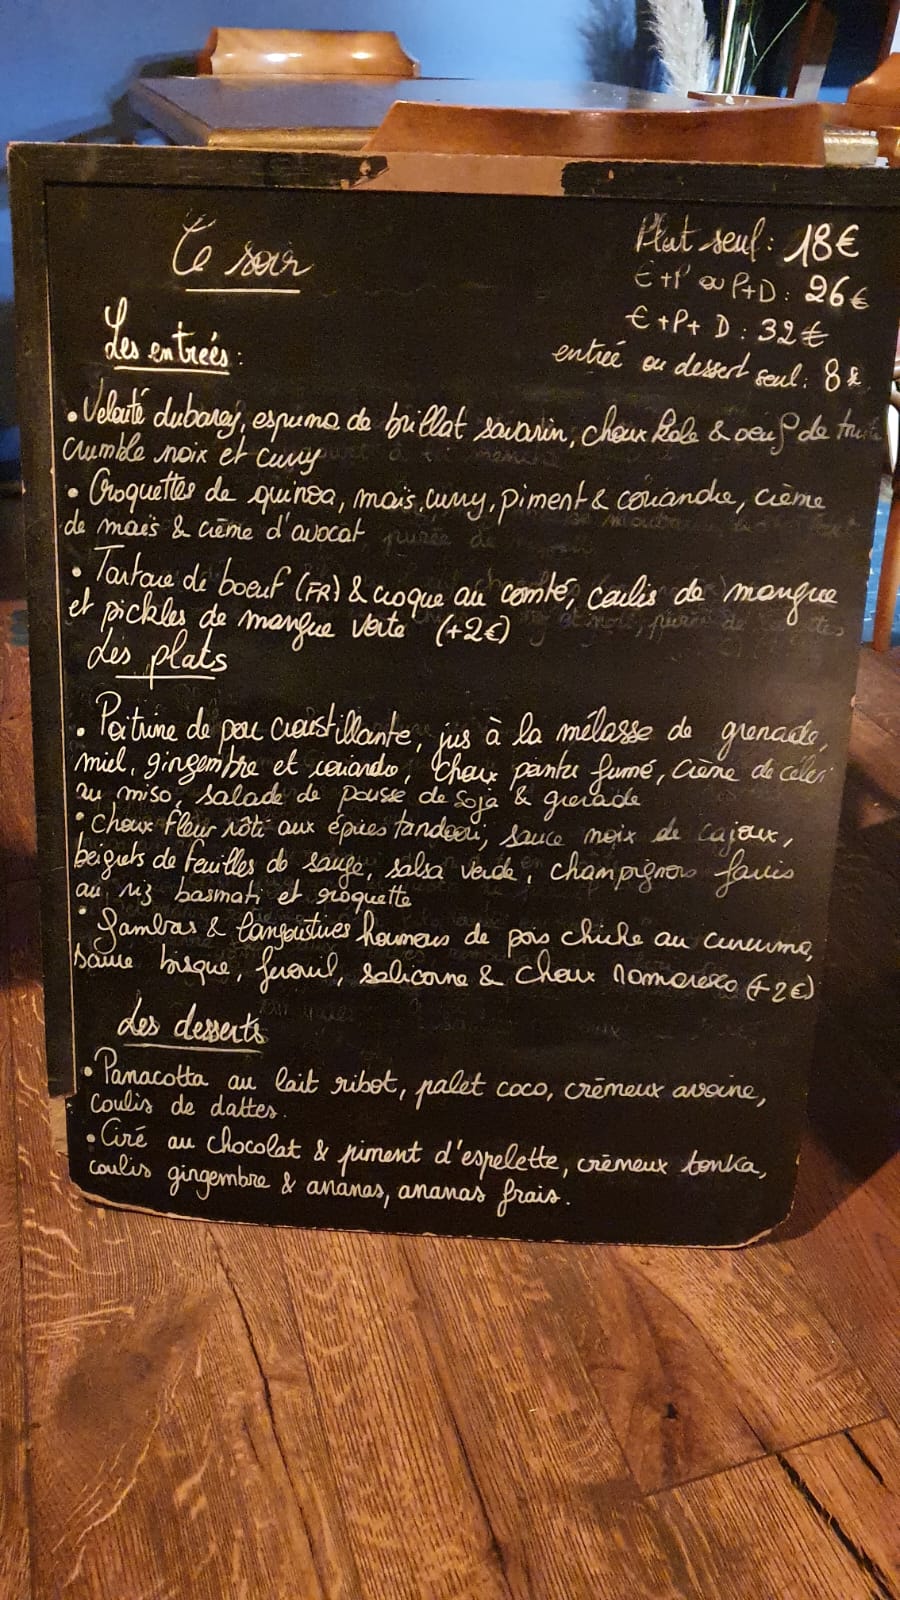 Ce soir
Plat seul : 18€
E+P ou P+D : 26€
E+P+D : 32€
entrée ou dessert seul : 8€
Les entrées :
• Velouté dubarry, espuma de brillat savarin, choux kale & oeuf de truite
crumble noix et curry
• Croquettes de quinoa, maïs, curry, piment & coriandre, crème
de maïs & crème d'avocat
• Tartare de boeuf (FR) & croque au comté, coulis de mangue
et pickles de mangue verte (+2€)
Les plats
• Poitrine de porc croustillante, jus à la mélasse de grenade,
miel, gingembre et coriandre, choux pointu fumé, crème de céleri
au miso, salade de pousse de soja & grenade
• Choux fleur rôti aux épices tandoori, sauce noix de cajoux,
beignets de feuilles de sauge, salsa verde, champignons farcis
au riz basmati et roquette
• Gambas & langoustines houmous de pois chiche au curcuma,
sauce bisque, fenouil, salicorne & choux romanesco (+2€)
Les desserts
• Panacotta au lait ribot, palet coco, crémeux avoine,
coulis de dattes.
• Ciré au chocolat & piment d'espelette, crèmeux tonka,
coulis gingembre & ananas, ananas frais.